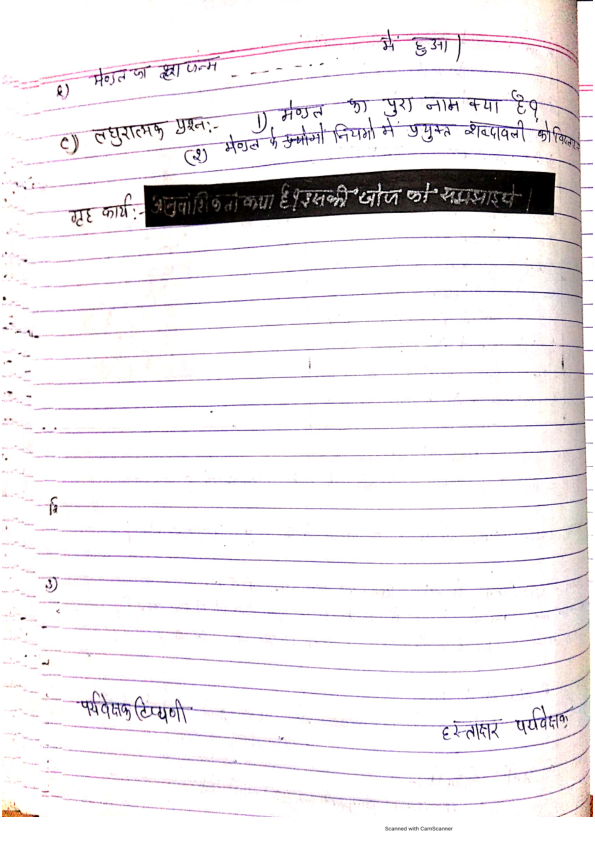 २) मेण्डल का जन्म - - - - - - - में हुआ |
c) लघुरात्मक प्रश्न:- 1) मेण्डल का पुरा नाम क्या है?
(२) मेण्डल के नियमों में प्रयुक्त शब्दावली को
गृह कार्य:- आनुवांशिकता क्या है? इसकी खोज को समझाइये |
3)
पर्यवेक्षक टिप्पणी
हस्ताक्षर पर्यवेक्षक
Scanned with CamScanner